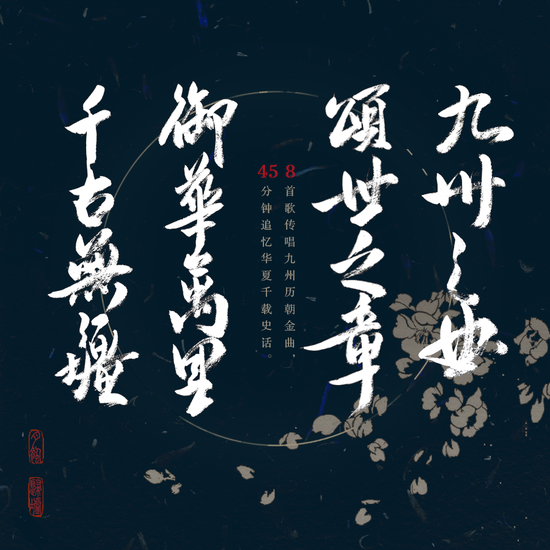 九州之曲
頌世之章
8首歌传唱九州历朝金曲，
45分钟追忆华夏千载史话。
御華萬里
千古無疆